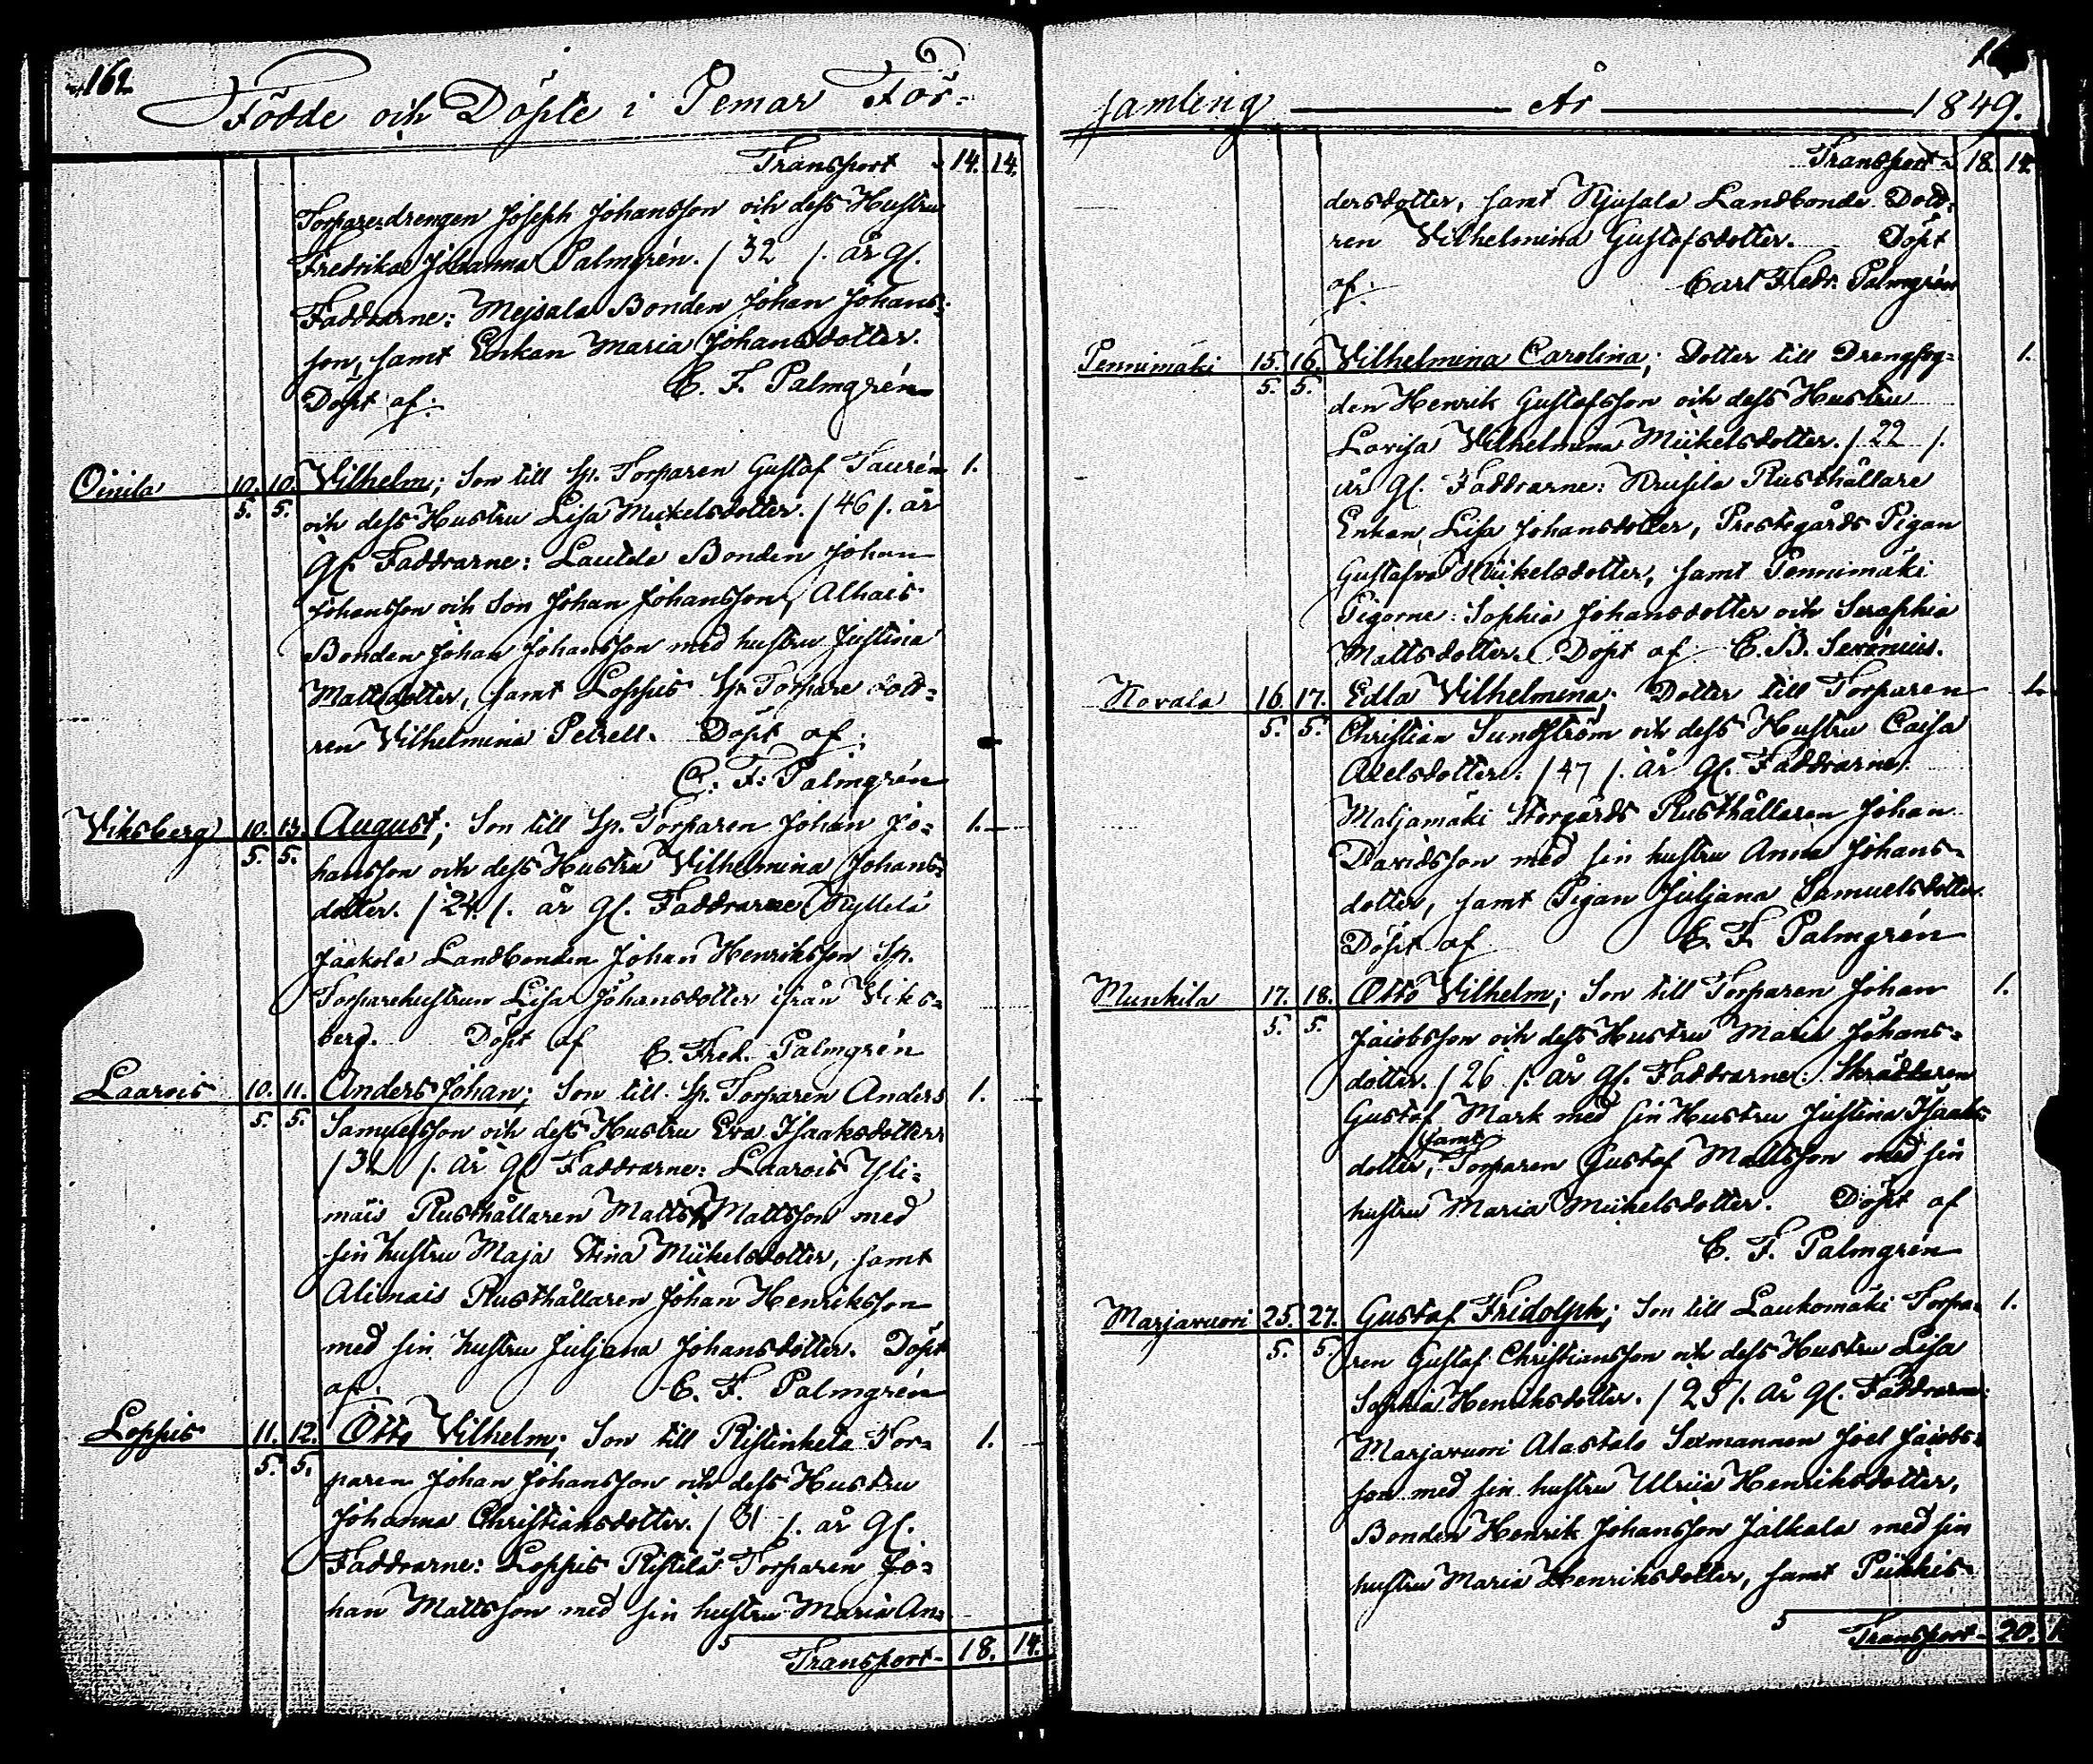 162.
Födde och Döpte i Pemar För-
Transport - 14. 14.
Torparedrengen Joseph Johansson och dess Hustru
Fredrika Johanna Palmgrén. / 32 /. år gl.
Faddrarne: Mejsala Bonden Johan Johans-
son, samt Enkan Maria Johansdotter.
Döpt af: C. F. Palmgrén
Oinila 10. 10. Vilhelm; Son till Sp. Torparen Gustaf Taurén 1.
5. 5. och dess Hustru Lisa Mickelsdotter. / 46 /. år
gl. Faddrarne: Bonden Johan
Johansson och Son Johan Johansson, Alhais
Bonden Johan Johansson med hustru Justina
Mattsdotter, samt Loppis Sp. Torpare dott-
ren Vilhelmina Petrell. Döpt af:
C. F. Palmgrén
Viksberg 10. 13. August; Son till Sp. Torparen Johan Jo- 1.
5. 5. hansson och dess Hustru Vilhelmina Johans-
dotter. / 24 /. år gl. Faddrarne
Jaakola Landbonden Johan Henriksson Sp.
Torparehustrun Lisa Johansdotter ifrån Viks-
berg. Döpt af C. Fred. Palmgrén
Laarois 10. 11. Anders Johan; Son till Sp. Torparen Anders 1.
5. 5. Samuelsson och dess Hustru Eva Isaaksdotter
/ 32 /. år gl Faddrarne: Laarois Yli-
mäis Rusthållaren Matts Mattsson med
sin hustru Maja Stina Mickelsdotter, samt
Alimais Rusthållaren Johan Henriksson
med sin hustru Juljana Johansdotter. Döpt
af: C. F. Palmgrén
Loppis 11. 12. Otto Vilhelm; Son till Tor- 1.
5. 5. paren Johan Johansson och dess Hustru
Johanna Christiansdotter. / 31 /. år gl.
Faddrarne: Loppis Ristilä Torparen Jo-
han Mattsson med sin hustru Maria An-
5
Transport - 18. 14.
samling År 1849.
Transport - 18. 14.
dersdotter, samt Landbonde Dott-
ren Vilhelmina Gustafsdotter. Döpt
af: Carl Fredr. Palmgrén
Pennimäki 15. 16. Vilhelmina Carolina; Dotter till Drengfog- 1.
5. 5. den Henrik Gustafsson och dess Hustru
Lovisa Vilhelmina Mickelsdotter. / 22 /.
år gl. Faddrarne: Rusthållare
Enkan Lisa Johansdotter, Prestegårds Pigan
Gustafva Mickelsdotter, samt Pennimäki
Pigorne: Sophia Johansdotter och Seraphia
Mattsdotter. Döpt af C. B. Serenius.
Novala 16. 17. Edla Vilhelmina; Dotter till Torparen 1.
5. 5. Christian Sundström och dess Hustru Caisa
Axelsdotter. / 47 /. år gl. Faddrarne:
Maljamäki Storgårds Rusthållaren Johan
Davidsson med sin hustru Anna Johans-
dotter, samt Pigan Juljana Samuelsdotter.
Döpt af C. F. Palmgrén
Munkila 17. 18. Otto Vilhelm; Son till Torparen Johan 1.
5. 5. Jacobsson och dess Hustru Maria Johans-
dotter. / 26 /. år gl. Faddrarne: Skräddaren
Gustaf Mark med sin Hustru Justina Isaaks-
samt
dotter, Torparen Gustaf Mattsson med sin
hustru Maria Mickelsdotter. Döpt af
C. F. Palmgrén
Marjavuori 25. 27. Gustaf Fridolph; Son till Laukomäki Torpa- 1.
5. 5. ren Gustaf Christiansson och dess Hustru Lisa
Sophia Henriksdotter. / 25 /. år gl. Faddrarne:
Marjavuori Alastalo Sexmannen Joel Jacobs-
son med sin hustru Ulrica Henriksdotter,
Bonden Henrik Johansson Jalkala med sin
hustru Maria Henriksdotter, samt Piikkis-
5
Transport - 20.